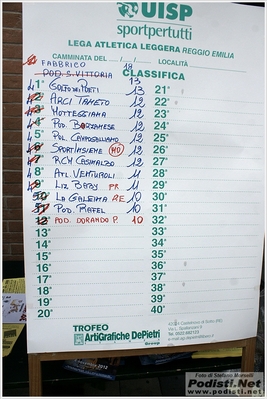 UISP
sportpertutti
LEGA ATLETICA LEGGERA REGGIO EMILIA
CAMMINATA DEL LOCALITÀ
FABBRICO 18
POD. S. VITTORIA 13
CLASSIFICA
1° GOLFO DEI POETI 13 21°
2° ARCI TANETO 12 22°
3° MOTTEGGIANA 12 23°
4° POD. BORZANESE 12 24°
5° POL. CAMPOGALLIANO 12 25°
6° SPORTINSIEME MO 12 26°
7° RCM CASINALBO 12 27°
8° ATL. VENTUROLI 11 28°
9° LIZ BERDS PR 11 29°
10° LA GALEMA RE 10 30°
11° POD. MAFEL 10 31°
12° POD. DORANDO P. 10 32°
13° 33°
14° 34°
15° 35°
16° 36°
17° 37°
18° 38°
19° 39°
20° 40°
TROFEO
ArtiGrafiche DePietri
Foto di Stefano Morselli
Podisti.Net
www.podisti.net